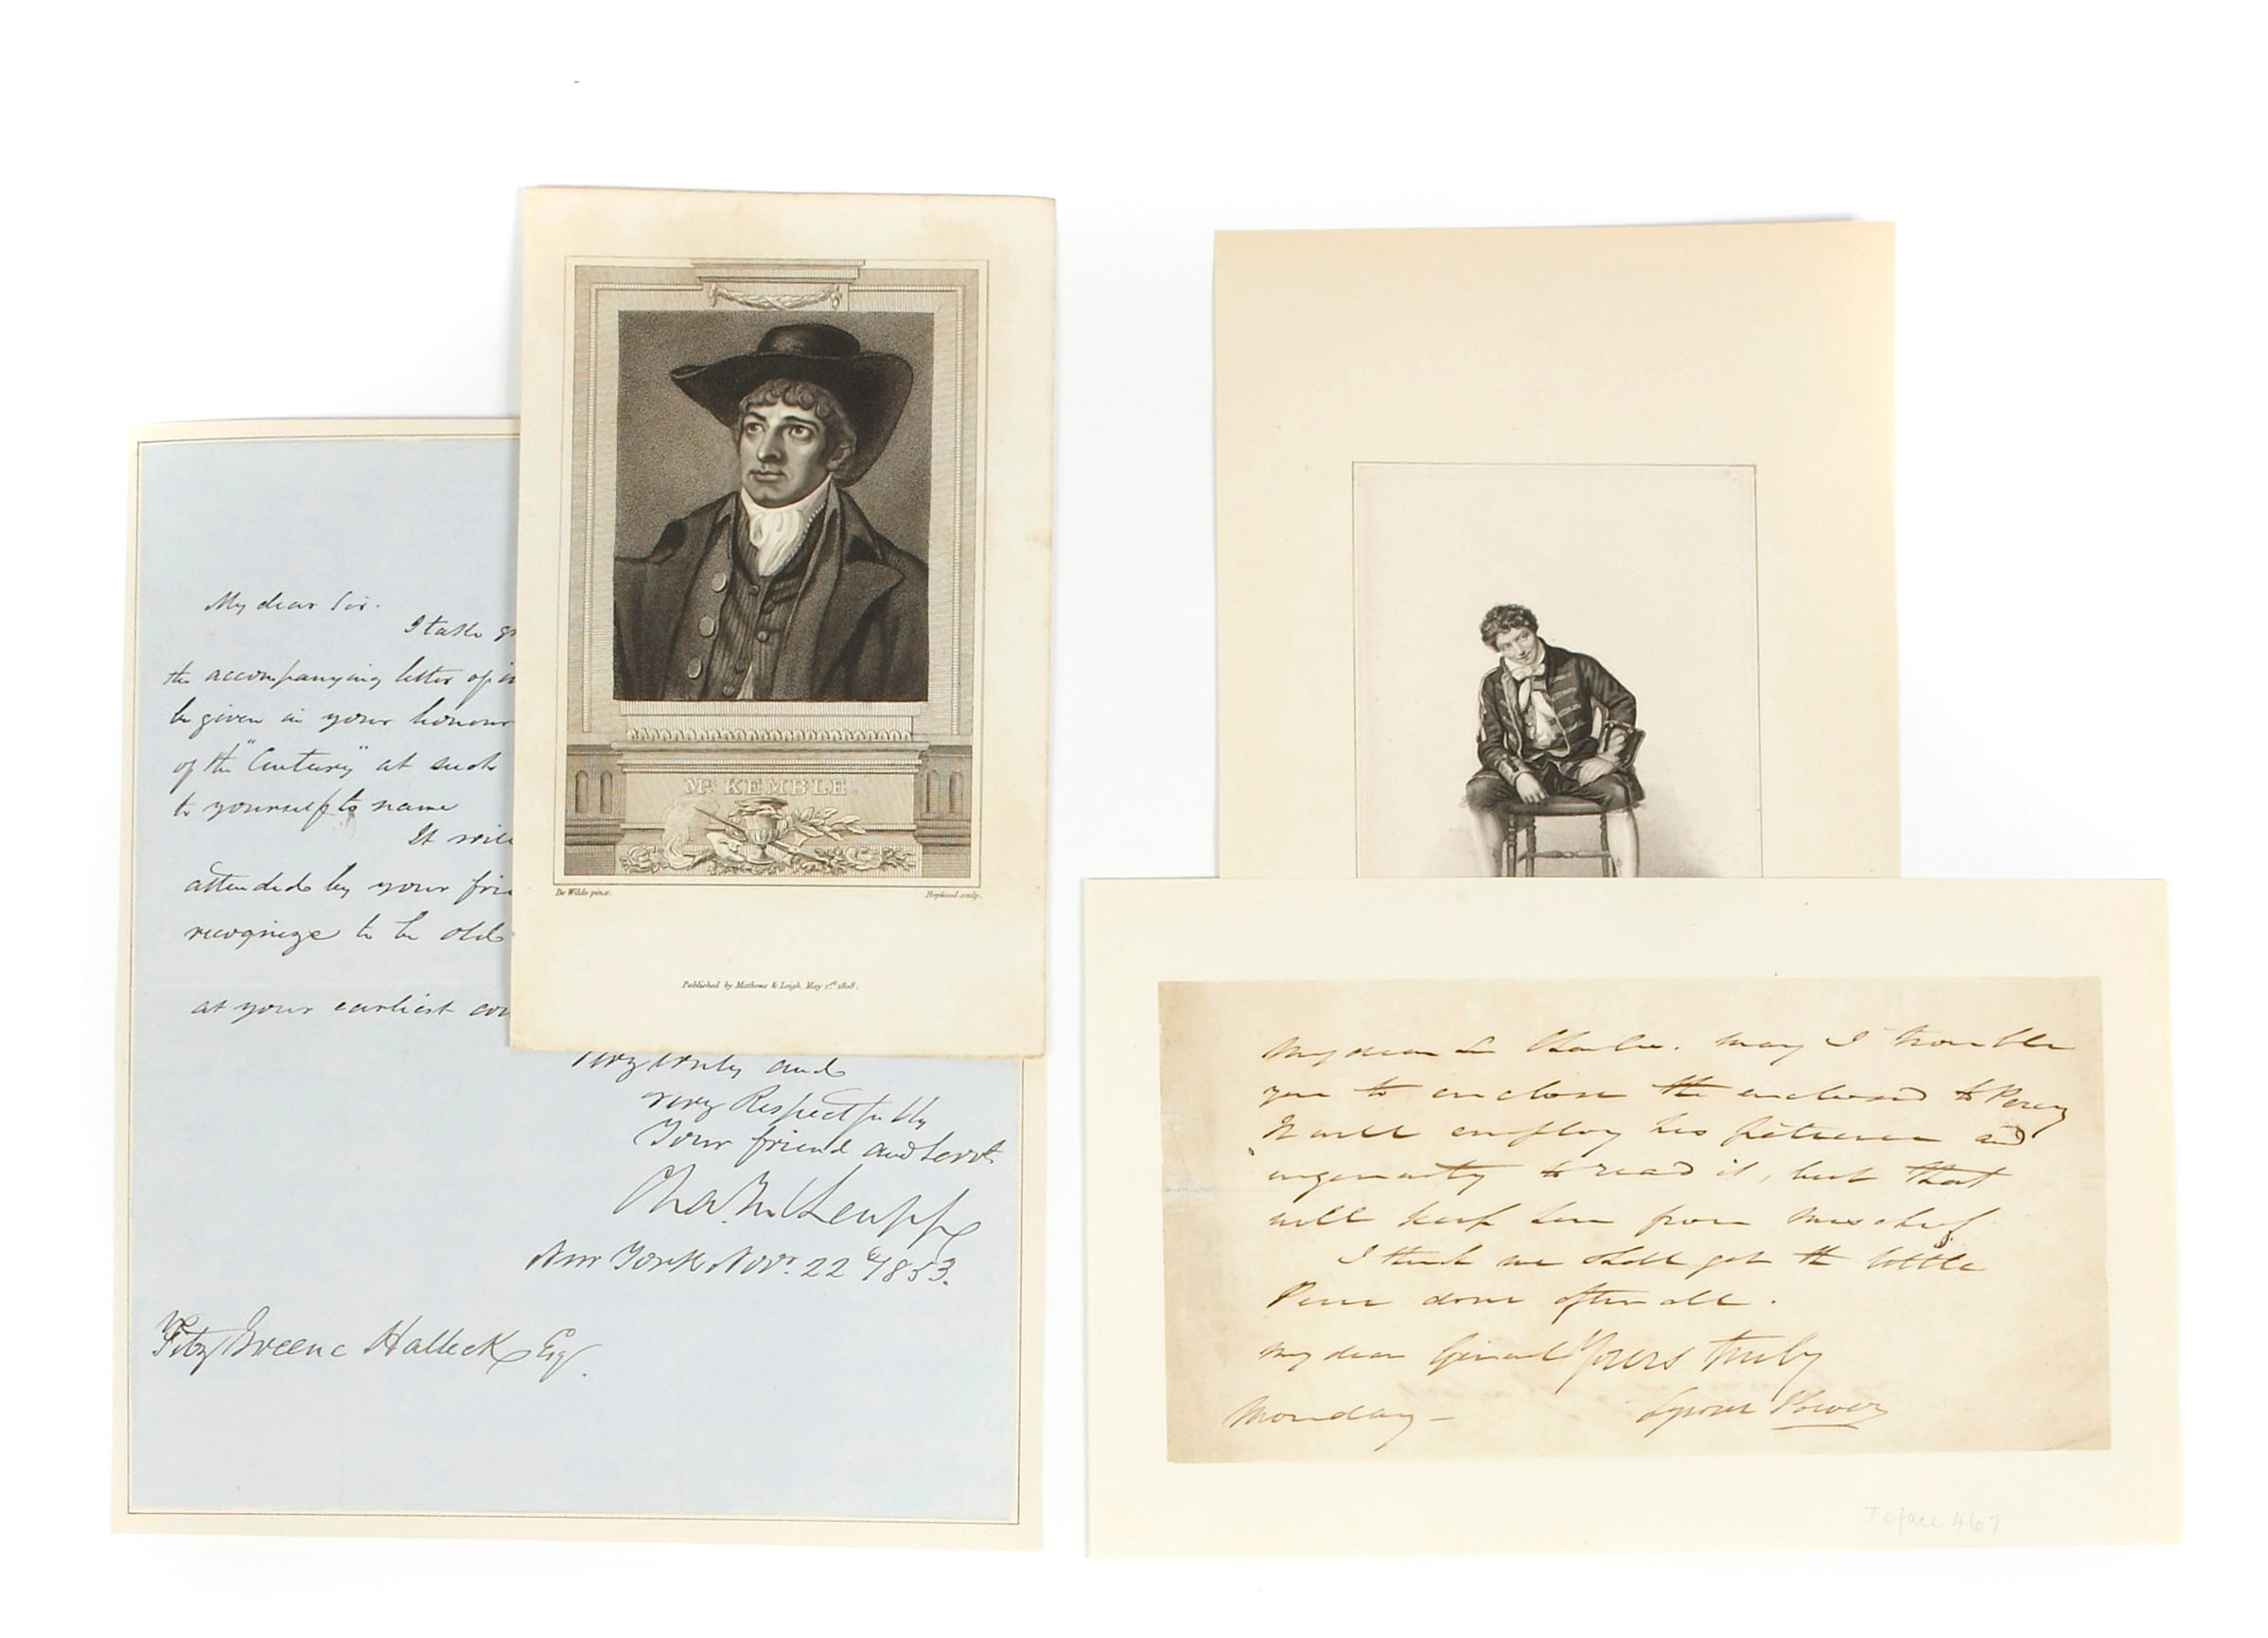 My dear Sir.
I take
the accompanying letter of
be given in your honour
of the "Century" at such
to yourself to name
It will
attended by your
recognize to be old
at your earliest
very truly and
very Respectfully
Your friend and Servt
Chas. M. Leupp
New York Novr. 22d/1853.
Fitz Greene Halleck Esq.
Mr. KEMBLE.
De Wilde pinx.
Hopwood sculp.
Published by Mathews & Leigh, May 1st. 1808.
My dear Sir Charles. may I trouble
you to enclose the enclosed to Percy
It will employ his patience and
ingenuity to read it, but that
will keep him from mischief.
I think we shall get the little
Piece done after all.
My dear General Yours truly
Monday – Tyrone Power
To face 467